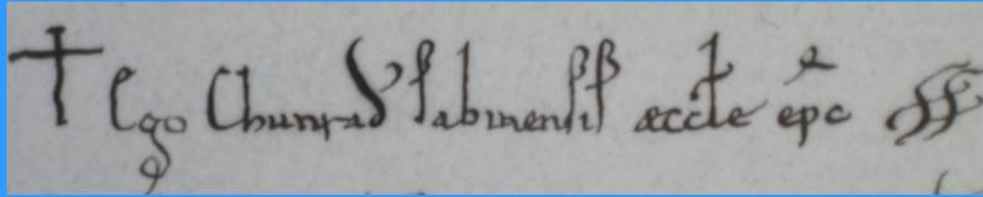 † Ego Chunrad' sabinensis æccle epc ss